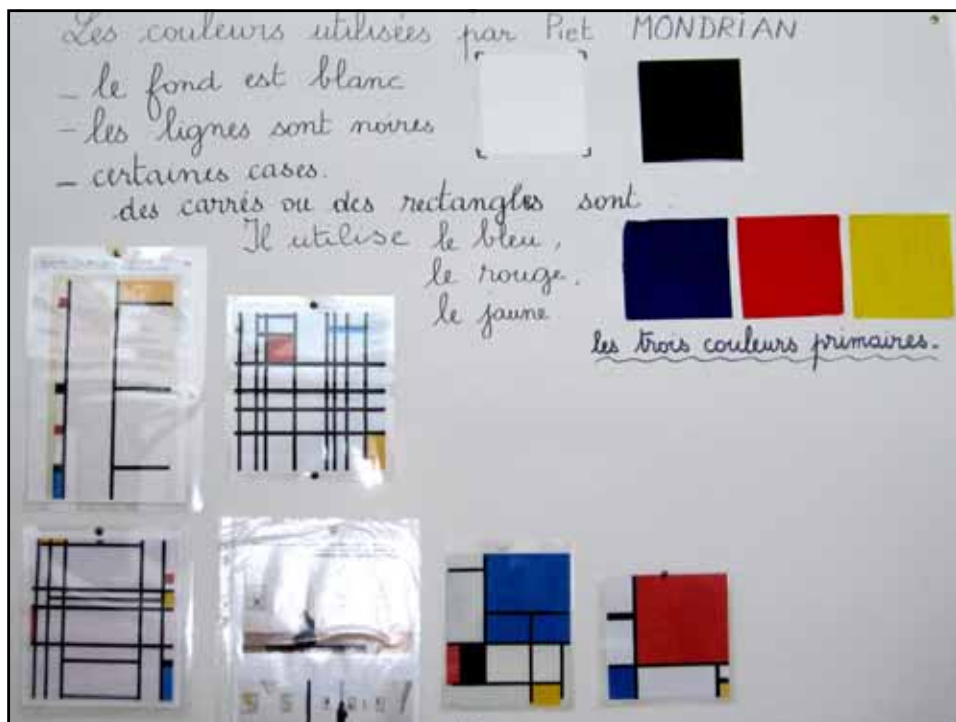 Les couleurs utilisées par Piet MONDRIAN
- le fond est blanc
- les lignes sont noires
- certaines cases.
des carrés ou des rectangles sont
Il utilise le bleu,
le rouge.
le jaune
les trois couleurs primaires.